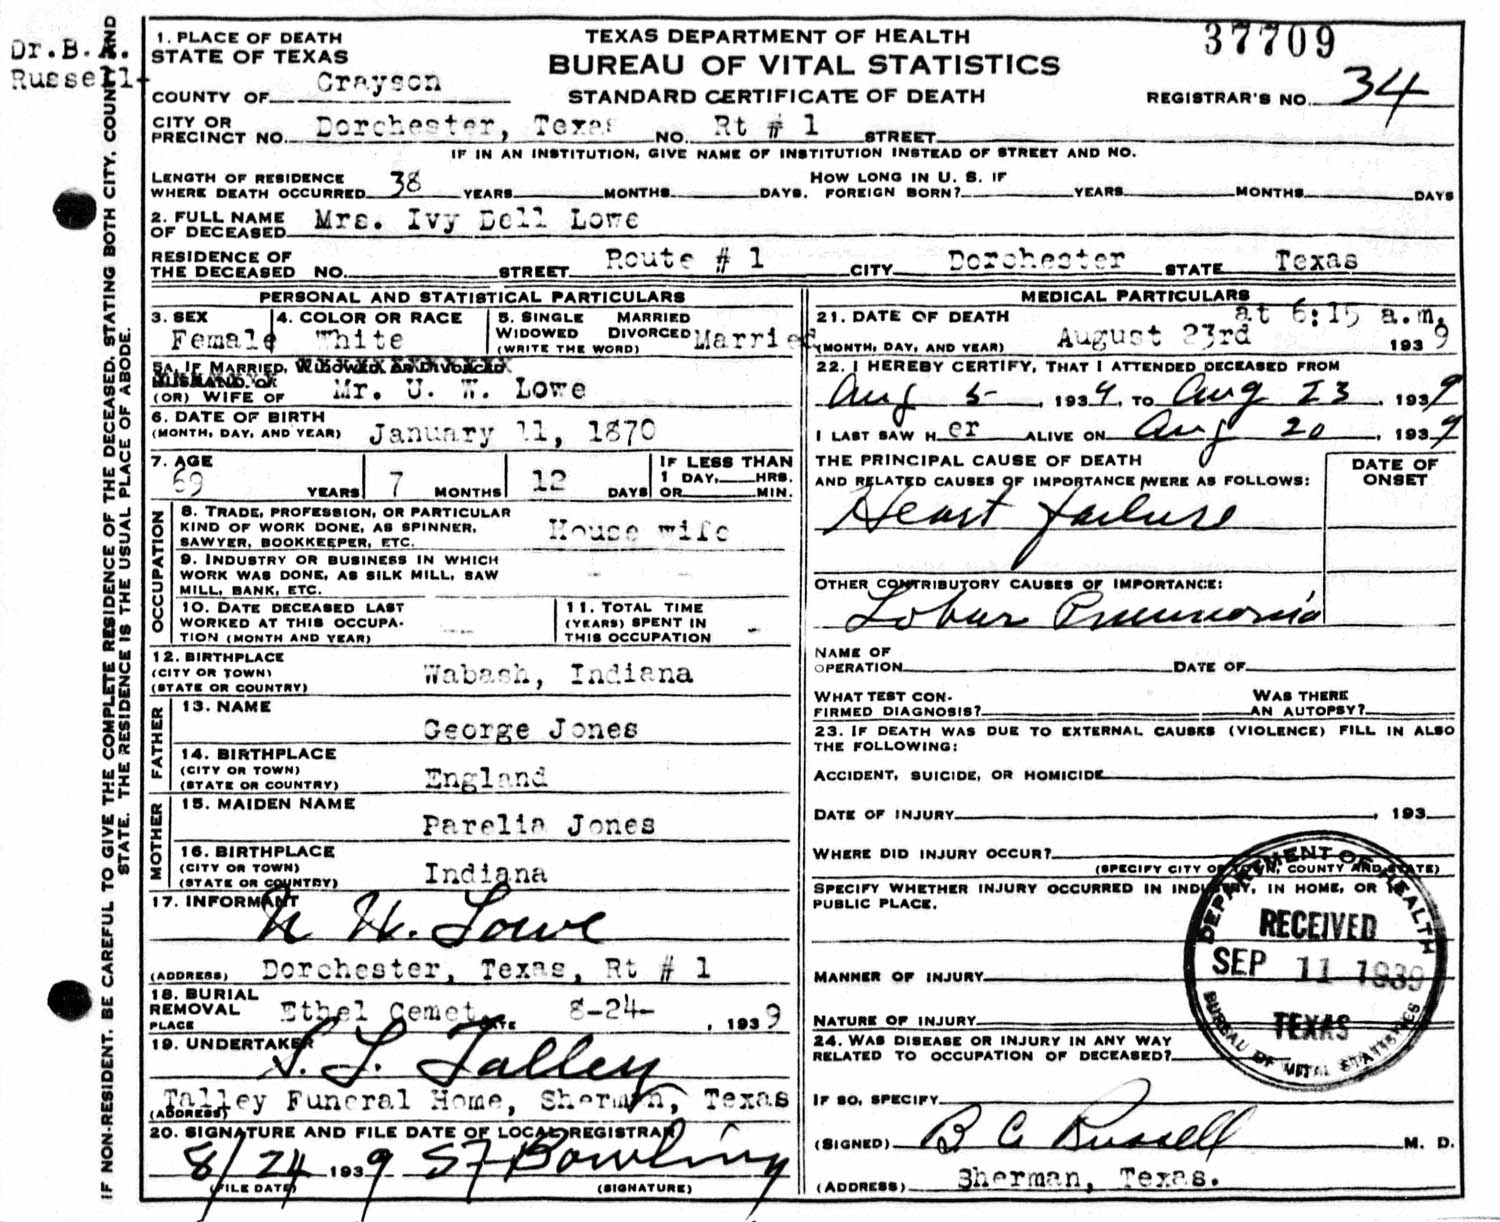 Dr. B. A.
Russell-
37709
TEXAS DEPARTMENT OF HEALTH
BUREAU OF VITAL STATISTICS
STANDARD CERTIFICATE OF DEATH
REGISTRAR'S NO. 34
1. PLACE OF DEATH
STATE OF TEXAS
COUNTY OF Grayson
CITY OR
PRECINCT NO. Dorchester, Texas NO. Rt # 1 STREET
IF IN AN INSTITUTION, GIVE NAME OF INSTITUTION INSTEAD OF STREET AND NO.
LENGTH OF RESIDENCE
WHERE DEATH OCCURRED 38 YEARS MONTHS DAYS.
HOW LONG IN U. S. IF
FOREIGN BORN? YEARS MONTHS DAYS
2. FULL NAME
OF DECEASED Mrs. Ivy Dell Lowe
RESIDENCE OF
THE DECEASED NO. STREET Route # 1 CITY Dorchester STATE Texas
PERSONAL AND STATISTICAL PARTICULARS
3. SEX
Female
4. COLOR OR RACE
White
5. SINGLE MARRIED
WIDOWED DIVORCED
(WRITE THE WORD) Married
5A. IF MARRIED, WIDOWED, OR DIVORCED
HUSBAND OF
(OR) WIFE OF Mr. U. W. Lowe
6. DATE OF BIRTH
(MONTH, DAY, AND YEAR) January 11, 1870
7. AGE
69 YEARS 7 MONTHS 12 DAYS
IF LESS THAN
1 DAY, HRS.
OR MIN.
OCCUPATION
8. TRADE, PROFESSION, OR PARTICULAR
KIND OF WORK DONE, AS SPINNER,
SAWYER, BOOKKEEPER, ETC. House wife
9. INDUSTRY OR BUSINESS IN WHICH
WORK WAS DONE, AS SILK MILL, SAW
MILL, BANK, ETC. - -
10. DATE DECEASED LAST
WORKED AT THIS OCCUPA-
TION (MONTH AND YEAR) --
11. TOTAL TIME
(YEARS) SPENT IN
THIS OCCUPATION -
12. BIRTHPLACE
(CITY OR TOWN)
(STATE OR COUNTRY) Wabash, Indiana
FATHER
13. NAME
George Jones
14. BIRTHPLACE
(CITY OR TOWN)
(STATE OR COUNTRY) England
MOTHER
15. MAIDEN NAME
Parelia Jones
16. BIRTHPLACE
(CITY OR TOWN)
(STATE OR COUNTRY) Indiana
17. INFORMANT
Lowe
(ADDRESS) Dorchester, Texas, Rt # 1
18. BURIAL
REMOVAL
PLACE Ethel Cemet. DATE 8-24- , 1939
19. UNDERTAKER
S. L. Talley
Talley Funeral Home, Sherman, Texas
(ADDRESS)
20. SIGNATURE AND FILE DATE OF LOCAL REGISTRAR
8/24 1939 Bowling
(FILE DATE) (SIGNATURE)
MEDICAL PARTICULARS
21. DATE OF DEATH at 6:15 a.m.
(MONTH, DAY, AND YEAR) August 23rd 1939
22. I HEREBY CERTIFY, THAT I ATTENDED DECEASED FROM
Aug 5- , 1939, TO Aug 23 , 1939
I LAST SAW Her ALIVE ON Aug 20 , 1939
THE PRINCIPAL CAUSE OF DEATH
AND RELATED CAUSES OF IMPORTANCE WERE AS FOLLOWS:
DATE OF
ONSET
Heart failure
OTHER CONTRIBUTORY CAUSES OF IMPORTANCE:
Lobar Pneumonia
NAME OF
OPERATION DATE OF
WHAT TEST CON-
FIRMED DIAGNOSIS?
WAS THERE
AN AUTOPSY?
23. IF DEATH WAS DUE TO EXTERNAL CAUSES (VIOLENCE) FILL IN ALSO
THE FOLLOWING:
ACCIDENT, SUICIDE, OR HOMICIDE
DATE OF INJURY , 193
WHERE DID INJURY OCCUR?
(SPECIFY CITY OR TOWN, COUNTY AND STATE)
SPECIFY WHETHER INJURY OCCURRED IN INDUSTRY, IN HOME, OR IN
PUBLIC PLACE.
MANNER OF INJURY
NATURE OF INJURY
24. WAS DISEASE OR INJURY IN ANY WAY
RELATED TO OCCUPATION OF DECEASED?
IF SO, SPECIFY
(SIGNED) Russell M. D.
(ADDRESS) Sherman, Texas.
DEPARTMENT OF HEALTH
RECEIVED
SEP 11 1939
TEXAS
BUREAU OF VITAL STATISTICS
IF NON-RESIDENT, BE CAREFUL TO GIVE THE COMPLETE RESIDENCE OF THE DECEASED, STATING BOTH CITY, COUNTY AND
STATE. THE RESIDENCE IS THE USUAL PLACE OF ABODE.